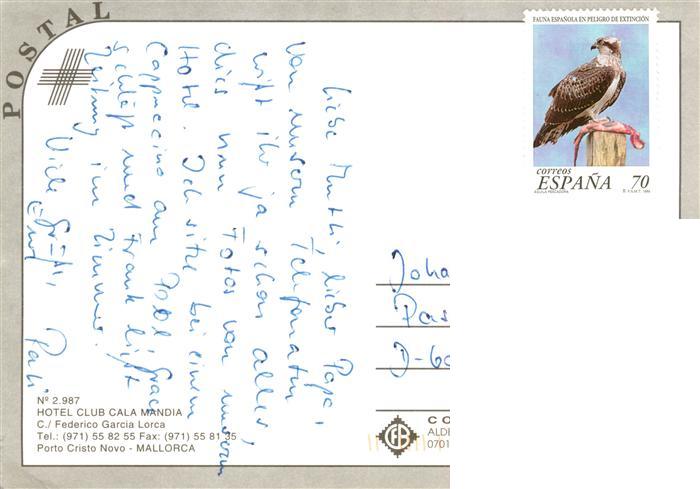 POSTAL
FAUNA ESPAÑOLA EN PELIGRO DE EXTINCIÓN
correos
ESPAÑA 70
AGUILA PESCADORA
Liebe Mutti, lieber Papa,
von unseren Telefonaten
wißt ihr ja schon alles,
dies nun Fotos von unserem
Hotel. Ich sitze bei einem
Cappuccino am Pool, Grace
schläft und Frank liest
Zeitung im Zimmer.
Viele Grüße,
Joha
Pas
D-6
Nº 2.987
HOTEL CLUB CALA MANDIA
C./ Federico Garcia Lorca
Tel.: (971) 55 82 55 Fax: (971) 55 81 35
Porto Cristo Novo - MALLORCA
CO
ALD
0701